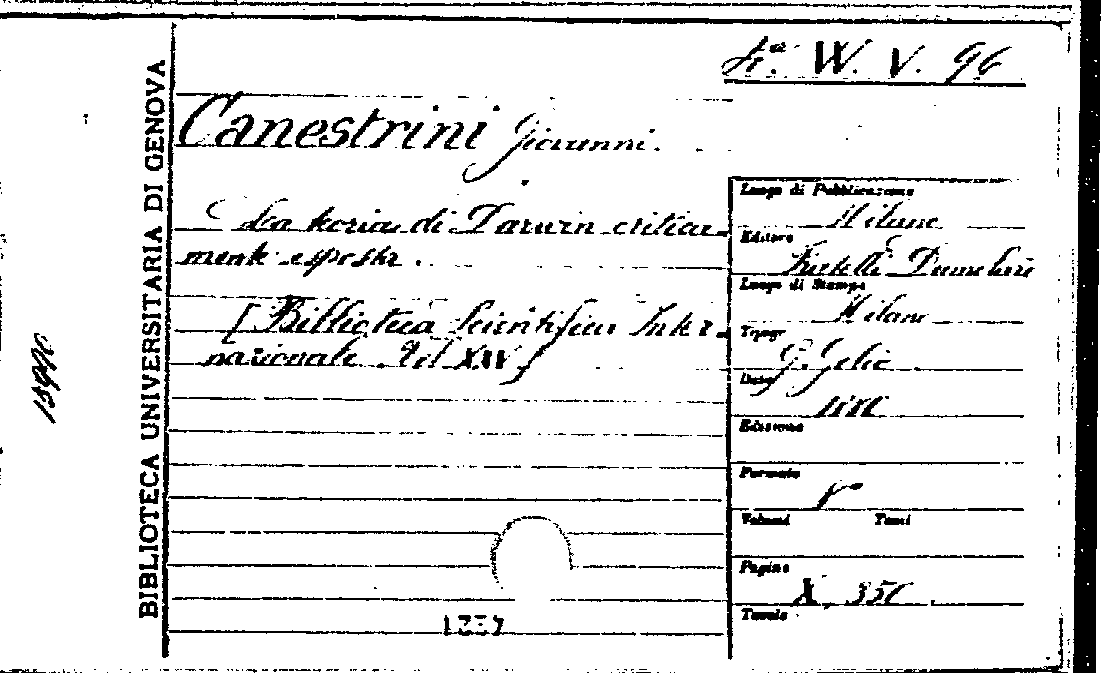 4ª. W. V. 96
BIBLIOTECA UNIVERSITARIA DI GENOVA
Canestrini Giovanni.
La teoria di Darwin critica-
mente esposta.
[Biblioteca Scientifica Inter-
nazionale Vol XXV]
Luogo di Pubblicazione
Milano
Editore
Fratelli Dumolard
Luogo di Stampa
Milano
Tipogr.
Data
Edizione
Formato
8º
Volumi Tomi
Pagine
X, 350
Tavole